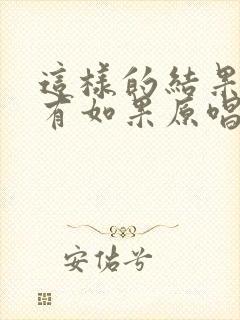 這樣的結果
有如果原唱
安佑兮